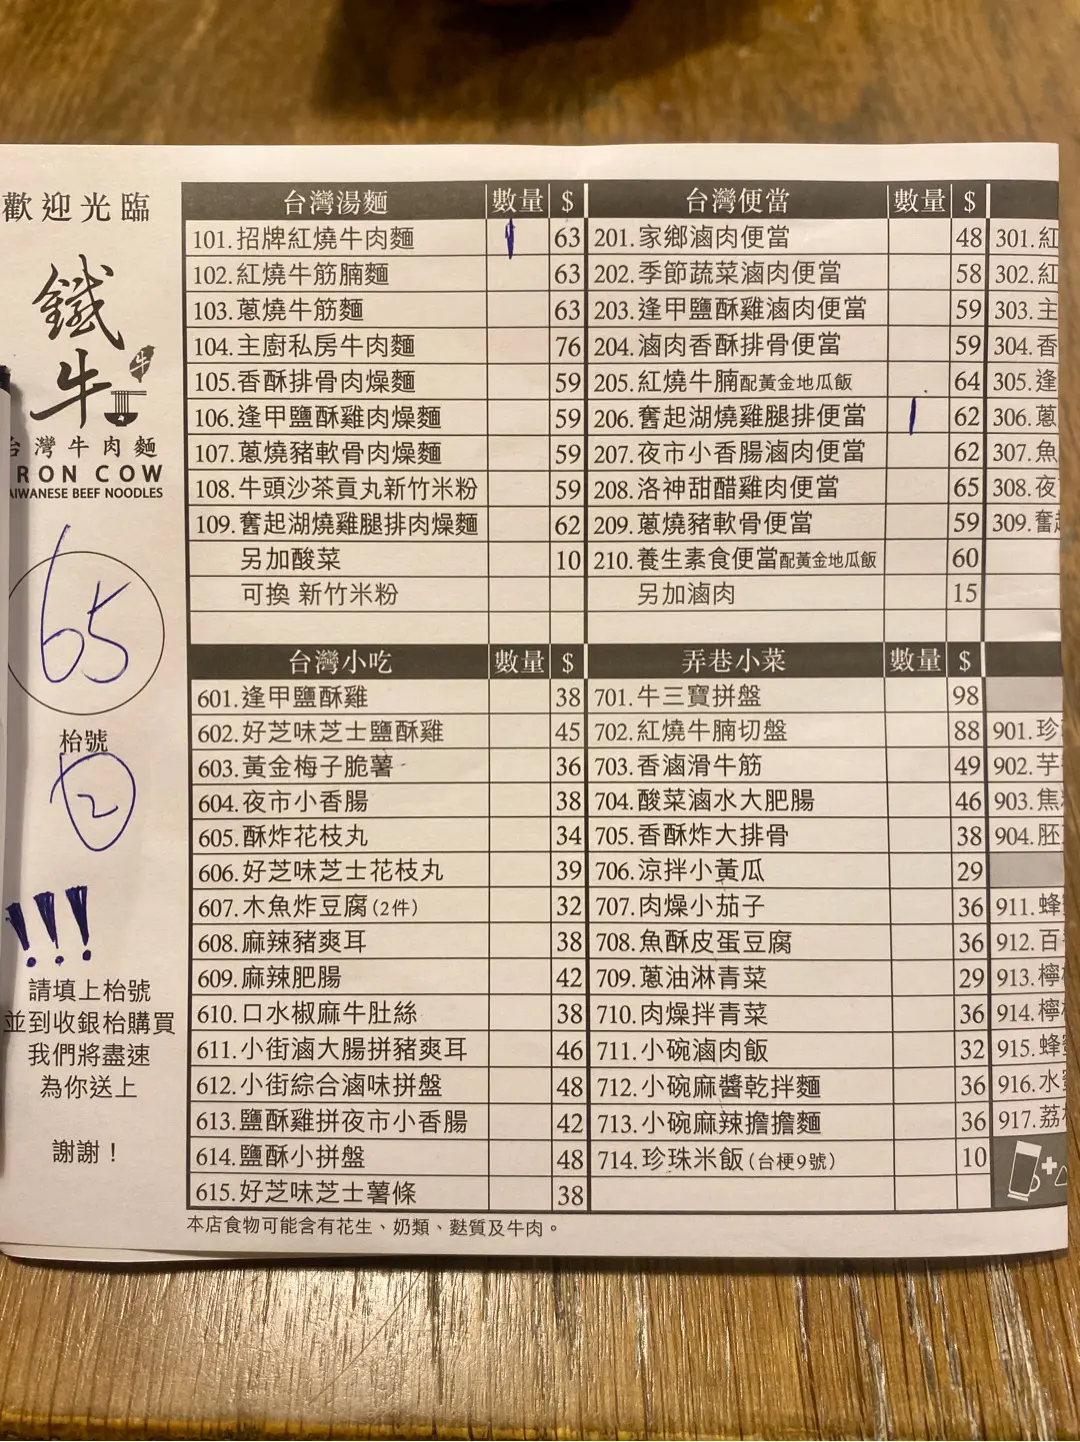 歡迎光臨
鐵牛
牛
台灣牛肉麵
RON COW
AIWANESE BEEF NOODLES
65
枱號
2
!!!
請填上枱號
並到收銀枱購買
我們將盡速
為你送上
謝謝！
台灣湯麵 數量 $
101.招牌紅燒牛肉麵 1 63
102.紅燒牛筋腩麵 63
103.蔥燒牛筋麵 63
104.主廚私房牛肉麵 76
105.香酥排骨肉燥麵 59
106.逢甲鹽酥雞肉燥麵 59
107.蔥燒豬軟骨肉燥麵 59
108.牛頭沙茶貢丸新竹米粉 59
109.奮起湖燒雞腿排肉燥麵 62
另加酸菜 10
可換 新竹米粉
台灣便當 數量 $
201.家鄉滷肉便當 48
202.季節蔬菜滷肉便當 58
203.逢甲鹽酥雞滷肉便當 59
204.滷肉香酥排骨便當 59
205.紅燒牛腩配黃金地瓜飯 64
206.奮起湖燒雞腿排便當 1 62
207.夜市小香腸滷肉便當 62
208.洛神甜醋雞肉便當 65
209.蔥燒豬軟骨便當 59
210.養生素食便當配黃金地瓜飯 60
另加滷肉 15
301.紅
302.紅
303.主
304.香
305.逢
306.蔥
307.魚
308.夜
309.奮
台灣小吃 數量 $
601.逢甲鹽酥雞 38
602.好芝味芝士鹽酥雞 45
603.黃金梅子脆薯 36
604.夜市小香腸 38
605.酥炸花枝丸 34
606.好芝味芝士花枝丸 39
607.木魚炸豆腐(2件) 32
608.麻辣豬爽耳 38
609.麻辣肥腸 42
610.口水椒麻牛肚絲 38
611.小街滷大腸拼豬爽耳 46
612.小街綜合滷味拼盤 48
613.鹽酥雞拼夜市小香腸 42
614.鹽酥小拼盤 48
615.好芝味芝士薯條 38
弄巷小菜 數量 $
701.牛三寶拼盤 98
702.紅燒牛腩切盤 88
703.香滷滑牛筋 49
704.酸菜滷水大肥腸 46
705.香酥炸大排骨 38
706.涼拌小黃瓜 29
707.肉燥小茄子 36
708.魚酥皮蛋豆腐 36
709.蔥油淋青菜 29
710.肉燥拌青菜 36
711.小碗滷肉飯 32
712.小碗麻醬乾拌麵 36
713.小碗麻辣擔擔麵 36
714.珍珠米飯(台梗9號) 10
901.珍
902.芋
903.焦
904.胚
911.蜂
912.百
913.檸
914.檸
915.蜂
916.水
917.荔
本店食物可能含有花生、奶類、麩質及牛肉。